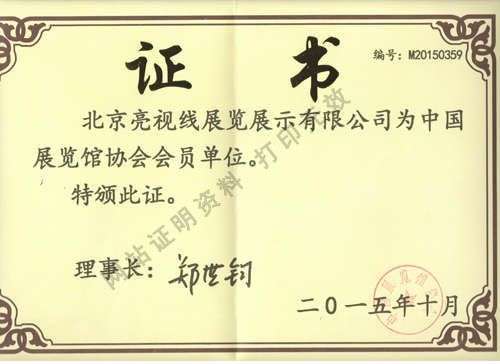 证 书
编号：M20150359
北京亮视线展览展示有限公司为中国
展览馆协会会员单位。
特颁此证。
理事长：郑世钧
二〇一五年十月
网站证明资料 打印无效